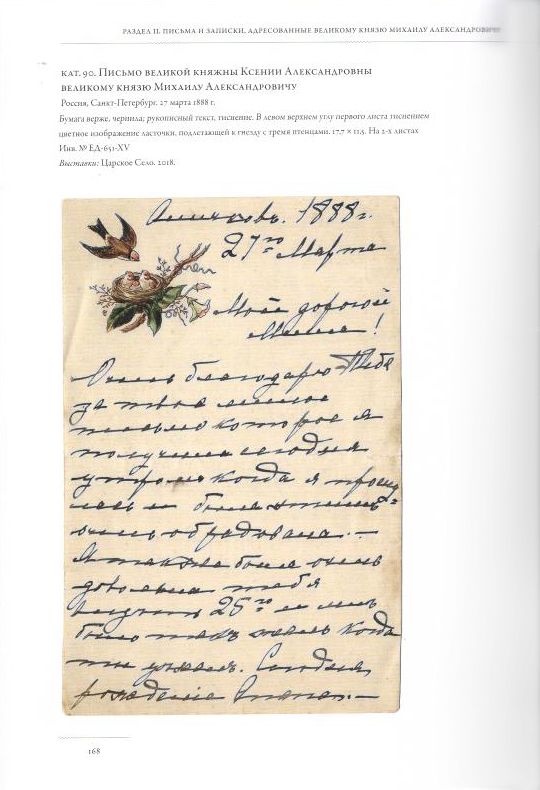 РАЗДЕЛ II. ПИСЬМА И ЗАПИСКИ, АДРЕСОВАННЫЕ ВЕЛИКОМУ КНЯЗЮ МИХАИЛУ АЛЕКСАНДРОВИЧУ
КАТ. 90. ПИСЬМО ВЕЛИКОЙ КНЯЖНЫ КСЕНИИ АЛЕКСАНДРОВНЫ
ВЕЛИКОМУ КНЯЗЮ МИХАИЛУ АЛЕКСАНДРОВИЧУ
Россия, Санкт-Петербург. 27 марта 1888 г.
Бумага верже, чернила; рукописный текст, тиснение. В левом верхнем углу первого листа тиснением
цветное изображение ласточки, подлетающей к гнезду с тремя птенцами. 17,7 × 11,5. На 2-х листах
Инв. № ЕД-651-XV
Выставки: Царское Село. 2018.
Аничковъ. 1888 г.
27го Марта
Мой дорогой
Миша!
Очень благодарю Тебя
за твое милое
письмо которое я
получила сегодня
утромъ когда я просну
лась и была
очень обрадована.—
Я также была очень
довольна тебя
видѣть 25го и мнѣ
было такъ жаль когда
ты уѣхалъ. Сегодня
рожденіе Papa.—
168